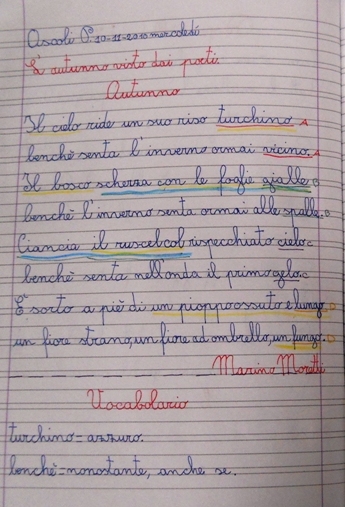 Ascoli P. 10-11-2010 mercoledì
L'autunno visto dai poeti.
Autunno
Il cielo ride un suo riso turchino A
benchè senta l'inverno ormai vicino. A
Il bosco scherza con le foglie gialle B
benchè l'inverno senta ormai alle spalle. B
Ciancia il ruscel col rispecchiato cielo C
benchè senta nell'onda il primo gelo. C
È sorto a piè di un pioppo ossuto e lungo D
un fiore strano, un fiore ad ombrello, un fungo. D
Marino Moretti
Vocabolario
turchino = azzuro.
benchè = nonostante, anche se.